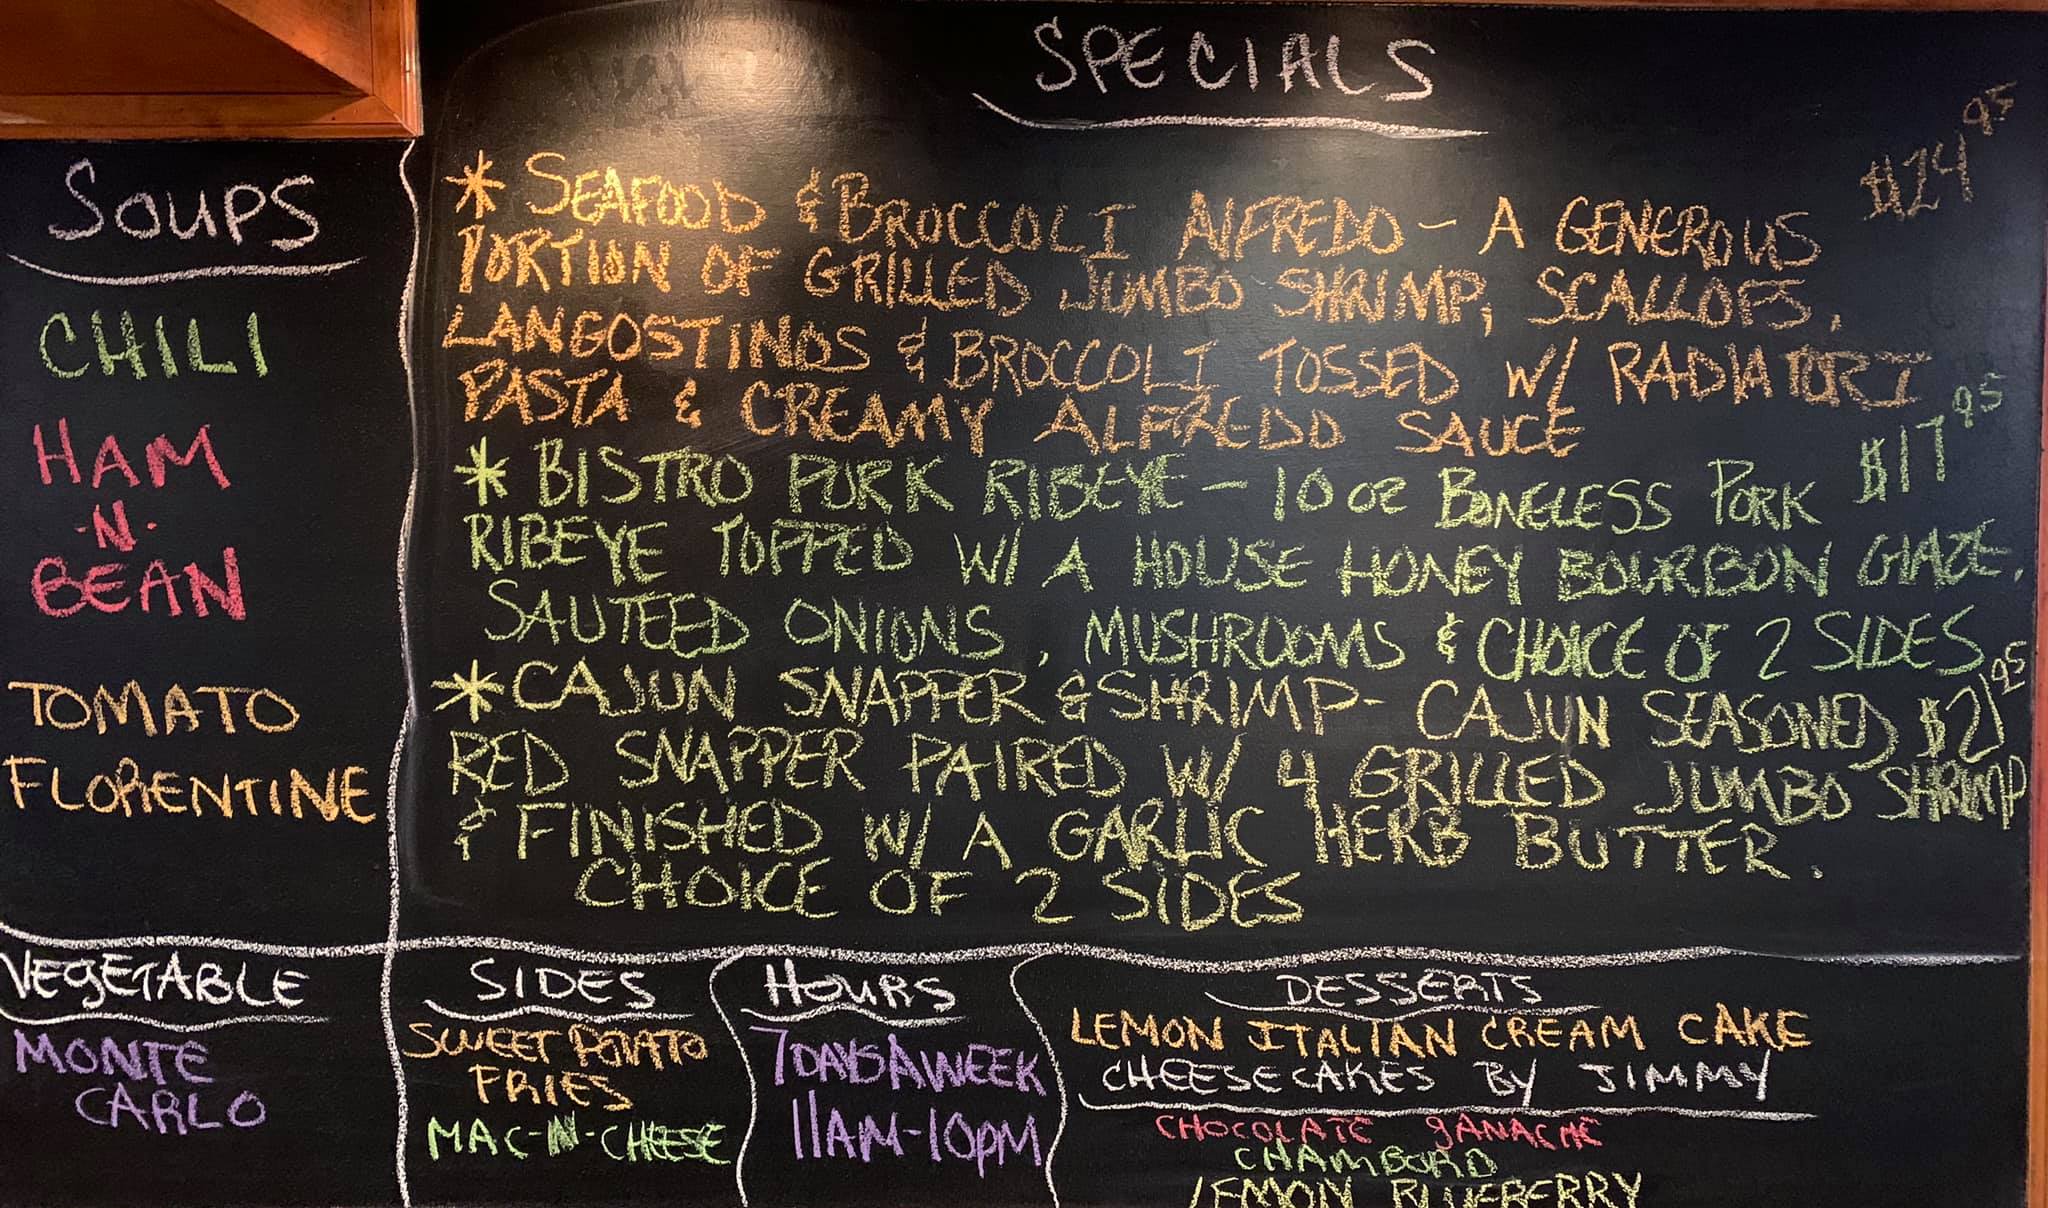 SPECIALS
* SEAFOOD & BROCCOLI ALFREDO - A GENEROUS $24.95
PORTION OF GRILLED JUMBO SHRIMP, SCALLOPS,
LANGOSTINOS & BROCCOLI TOSSED W/ RADIATORI
PASTA & CREAMY ALFREDO SAUCE
* BISTRO PORK RIBEYE - 10 OZ BONELESS PORK $17.95
RIBEYE TOPPED W/ A HOUSE HONEY BOURBON GLAZE,
SAUTEED ONIONS, MUSHROOMS & CHOICE OF 2 SIDES
* CAJUN SNAPPER & SHRIMP - CAJUN SEASONED $21.95
RED SNAPPER PAIRED W/ 4 GRILLED JUMBO SHRIMP
& FINISHED W/ A GARLIC HERB BUTTER.
CHOICE OF 2 SIDES
SOUPS
CHILI
HAM
-N-
BEAN
TOMATO
FLORENTINE
VEGETABLE
MONTE
CARLO
SIDES
SWEET POTATO
FRIES
MAC-N-CHEESE
HOURS
7 DAYS A WEEK
11AM-10PM
DESSERTS
LEMON ITALIAN CREAM CAKE
CHEESECAKES BY JIMMY
CHOCOLATE GANACHE
CHAMBORD
LEMON BLUEBERRY